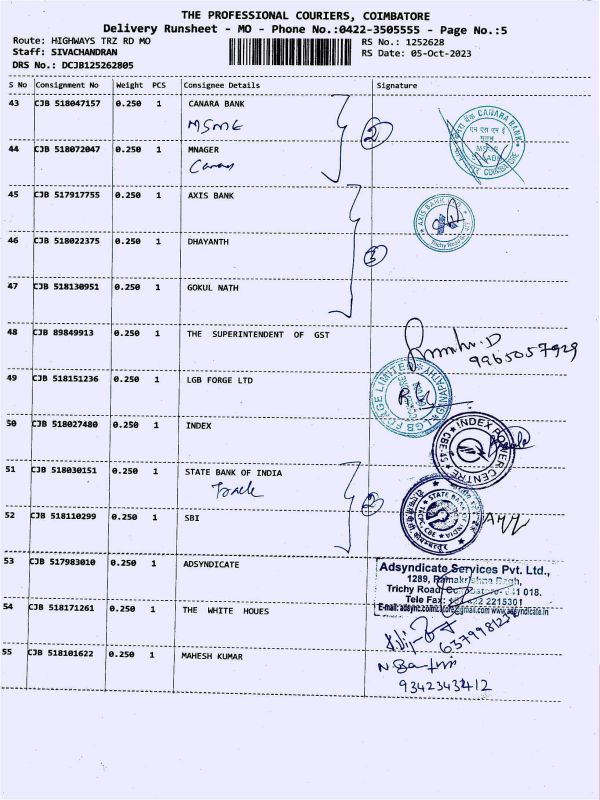 THE PROFESSIONAL COURIERS, COIMBATORE
Delivery Runsheet - MO - Phone No.:0422-3505555 - Page No.:5
Route: HIGHWAYS TRZ RD MO
RS No.: 1252628
Staff: SIVACHANDRAN
RS Date: 05-Oct-2023
DRS No.: DCJB125262805
S No Consignment No Weight PCS Consignee Details Signature
43 CJB 518047157 0.250 1 CANARA BANK
MSME
2
CANARA BANK
COIMBATORE
44 CJB 518072047 0.250 1 MNAGER
45 CJB 517917755 0.250 1 AXIS BANK
AXIS BANK
Trichy Road
46 CJB 518022375 0.250 1 DHAYANTH
3
47 CJB 518130951 0.250 1 GOKUL NATH
48 CJB 89849913 0.250 1 THE SUPERINTENDENT OF GST
9965057929
49 CJB 518151236 0.250 1 LGB FORGE LTD
LGB FORGE LIMITED
50 CJB 518027480 0.250 1 INDEX
INDEX POWER CENTRE
CBE-45
51 CJB 518030151 0.250 1 STATE BANK OF INDIA
2
STATE BANK OF INDIA
52 CJB 518110299 0.250 1 SBI
53 CJB 517983010 0.250 1 ADSYNDICATE
Adsyndicate Services Pvt. Ltd.,
1289, Ramakrishna
Trichy Road, Coimbatore- 641 018.
Tele Fax: 2215301
54 CJB 518171261 0.250 1 THE WHITE HOUES
55 CJB 518101622 0.250 1 MAHESH KUMAR
9342343412